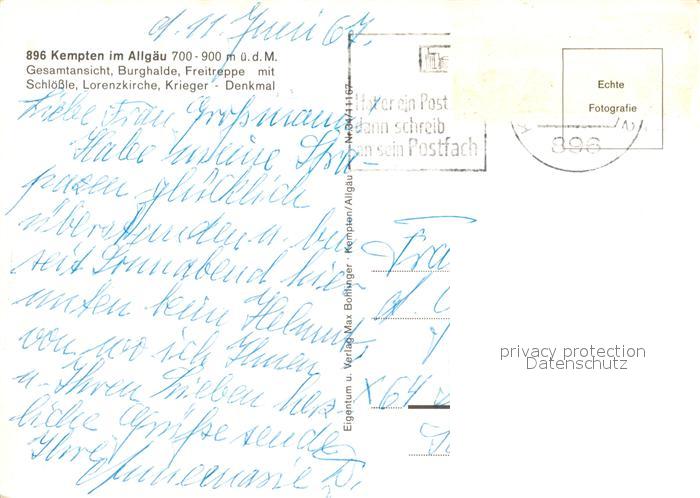 d. 11. Juni 67.
896 Kempten im Allgäu 700-900 m ü.d.M.
Gesamtansicht, Burghalde, Freitreppe mit
Schlößle, Lorenzkirche, Krieger - Denkmal
Liebe Frau Großmann
Habe meine Stra-
pazen glücklich
überstanden u. bin
seit Sonnabend hier
unten beim Helmut,
von wo ich Ihnen
u. Ihren Lieben herz-
liche Grüße sende
Ihre
Annemarie D.
Eigentum u. Verlag Max Bohlinger · Kempten/Allgäu
Nr. 34/1167
Hat er ein Post
dann schreib
an sein Postfach
896
Echte
Fotografie
Fra
d.
X64
privacy protection
Datenschutz